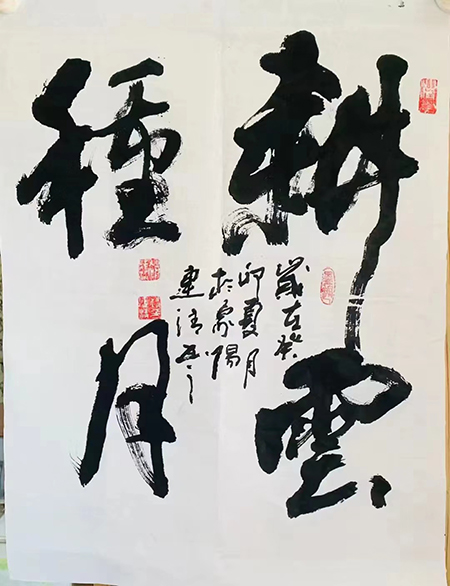 耕雲
種月
歲在癸
卯夏月
於襄陽
建清書